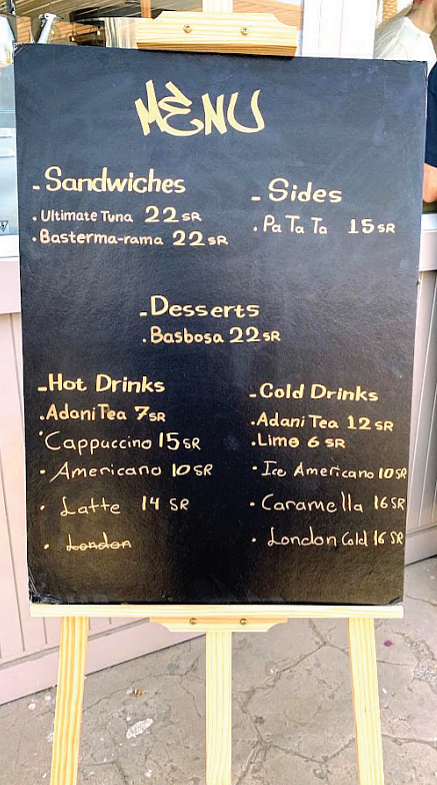 MENU
- Sandwiches
. Ultimate Tuna 22 SR
. Basterma-rama 22 SR
- Sides
. Pa Ta Ta 15 SR
- Desserts
. Basbosa 22 SR
- Hot Drinks
. Adani Tea 7 SR
. Cappuccino 15 SR
. Americano 10 SR
. Latte 14 SR
. London
- Cold Drinks
. Adani Tea 12 SR
. Lime 6 SR
. Ice Americano 10 SR
. Caramella 16 SR
. London Cold 16 SR